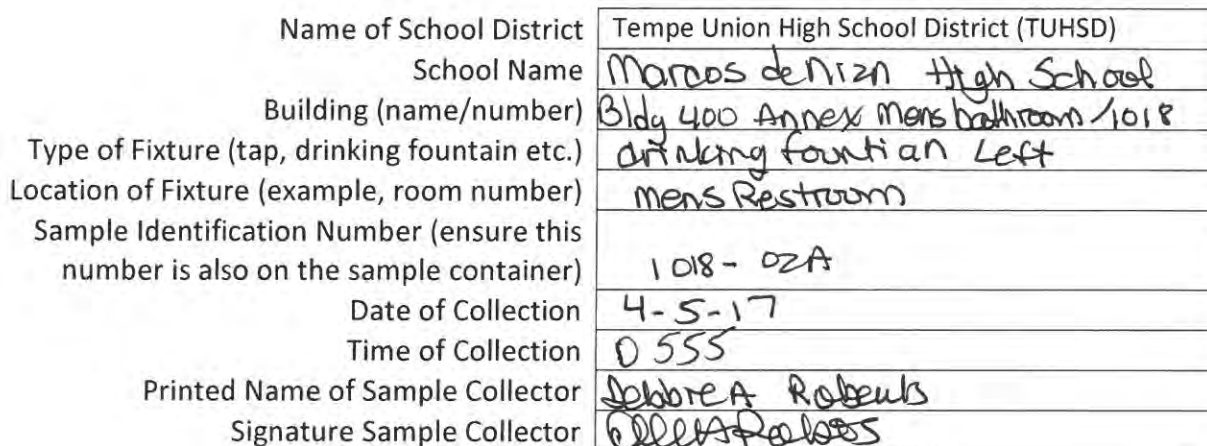 Name of School District Tempe Union High School District (TUHSD)
School Name Marcos de Niza High School
Building (name/number) Bldg 400 Annex Mens bathroom/1018
Type of Fixture (tap, drinking fountain etc.) drinking fountian Left
Location of Fixture (example, room number) mens Restroom
Sample Identification Number (ensure this
number is also on the sample container) 1018-02A
Date of Collection 4-5-17
Time of Collection 0555
Printed Name of Sample Collector Debbie A Roberts
Signature Sample Collector